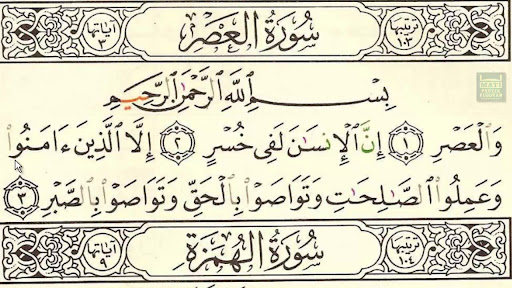 ترتيبها ١٠٣ سُورَةُ الْعَصْرِ آياتها ٣
بِسْمِ ٱللَّهِ ٱلرَّحْمَٰنِ ٱلرَّحِيمِ
وَٱلْعَصْرِ ١ إِنَّ ٱلْإِنسَٰنَ لَفِى خُسْرٍ ٢ إِلَّا ٱلَّذِينَ ءَامَنُوا۟
وَعَمِلُوا۟ ٱلصَّٰلِحَٰتِ وَتَوَاصَوْا۟ بِٱلْحَقِّ وَتَوَاصَوْا۟ بِٱلصَّبْرِ ٣
ترتيبها ١٠٤ سُورَةُ الْهُمَزَةِ آياتها ٩